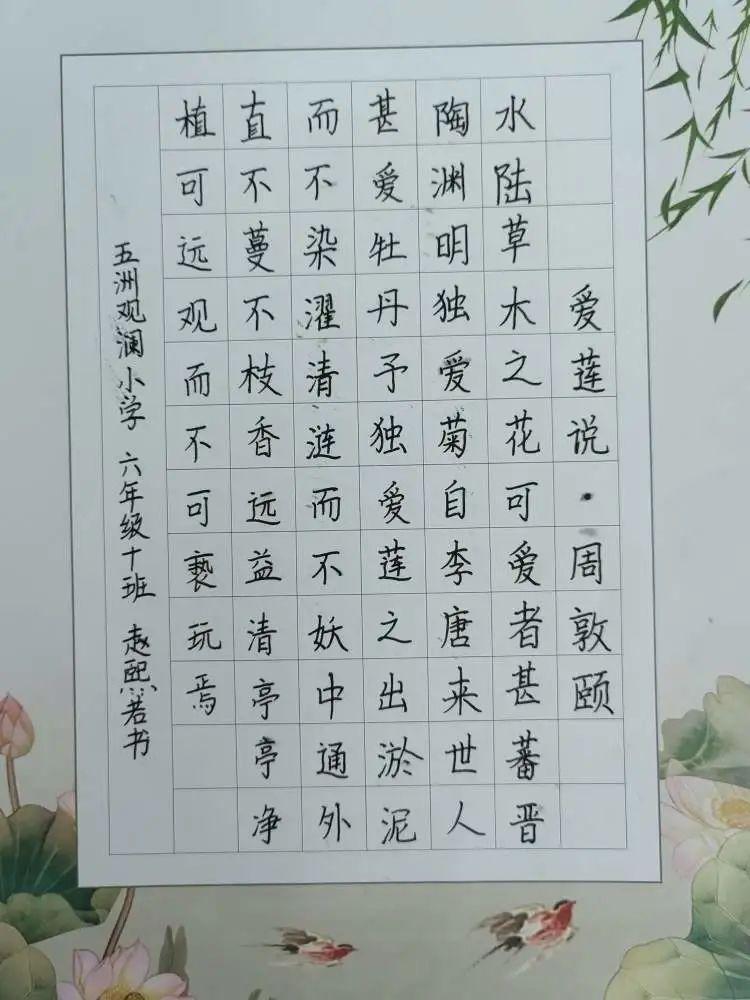 爱莲说·周敦颐
水陆草木之花可爱者甚蕃晋
陶渊明独爱菊自李唐来世人
甚爱牡丹予独爱莲之出淤泥
而不染濯清涟而不妖中通外
直不蔓不枝香远益清亭亭净
植可远观而不可亵玩焉
五洲观澜小学 六年级十班 赵熙若书